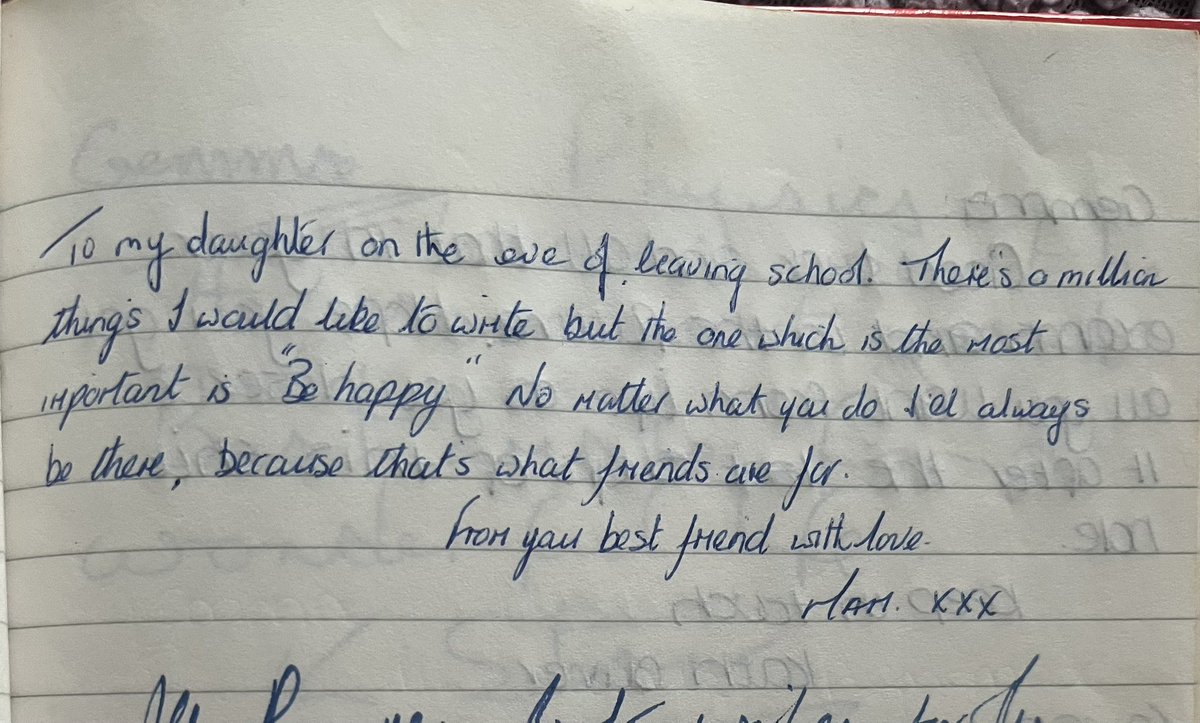 To my daughter on the eve of leaving school. There's a million
things I would like to write but the one which is the most
important is "Be happy" No matter what you do I'll always
be there, because that's what friends are for.
From you best friend with love.
MAM. xxx